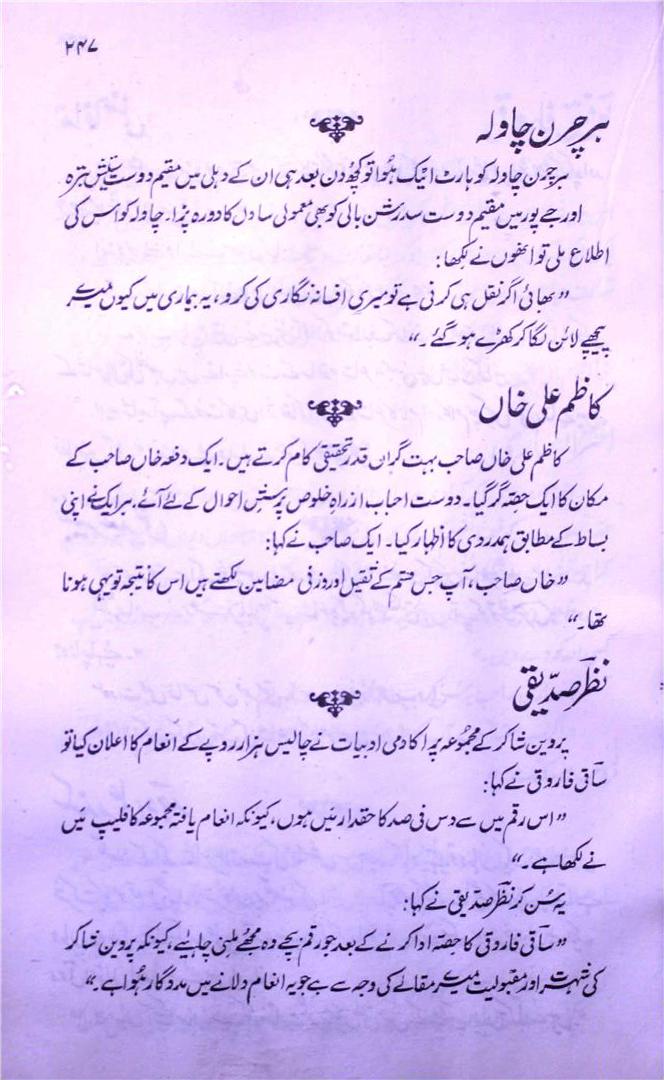 ۲۴۷
ہرچرن چاولہ
ہرچرن چاولہ کو ہارٹ اٹیک ہُوا تو کچھ دن بعد ہی ان کے دہلی میں مقیم دوست ستیش بترہ
اور جے پور میں مقیم دوست سدرشن بالی کو بھی معمولی سا دل کا دورہ پڑا۔ چاولہ کو اس کی
اطلاع ملی تو انھوں نے لکھا:
”بھائی اگر نقل ہی کرنی ہے تو میری افسانہ نگاری کی کرو، یہ بیماری میں کیوں میرے
پیچھے لائن لگا کر کھڑے ہو گئے۔“
کاظم علی خاں
کاظم علی خاں صاحب بہت گراں قدر تحقیقی کام کرتے ہیں۔ ایک دفعہ خاں صاحب کے
مکان کا ایک حصّہ گر گیا۔ دوست احباب از راہِ خلوص پرسشِ احوال کے لئے آئے۔ ہر ایک نے اپنی
بساط کے مطابق ہمدردی کا اظہار کیا۔ ایک صاحب نے کہا:
”خاں صاحب، آپ جس قسم کے ثقیل اور وزنی مضامین لکھتے ہیں اس کا نتیجہ تو یہی ہونا
تھا۔“
نظرؔ صدّیقی
پروین شاکر کے مجمُوعہ پر اکادمی ادبیات نے چالیس ہزار روپے کے انعام کا اعلان کیا تو
ساقی فاروقی نے کہا:
”اس رقم میں سے دس فی صد کا حقدار میں ہوں، کیونکہ انعام یافتہ مجموعہ کا فلیپ میں
نے لکھا ہے۔“
یہ سُن کر نظرؔ صدّیقی نے کہا:
”ساقی فاروقی کا حصّہ ادا کرنے کے بعد جو رقم بچے وہ مجھے ملنی چاہیے، کیونکہ پروین شاکر
کی شہرت اور مقبولیت میرے مقالے کی وجہ سے ہے جو یہ انعام دلانے میں مددگار ہُوا ہے۔“